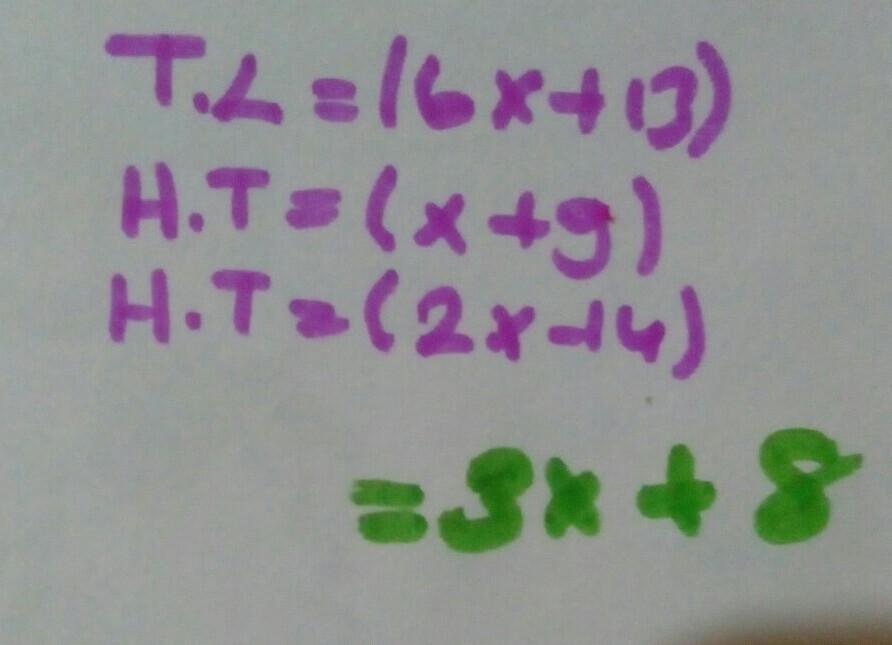 T.L = (6x+13)
H.T = (x+9)
H.T = (2x-14)
= 3x + 8